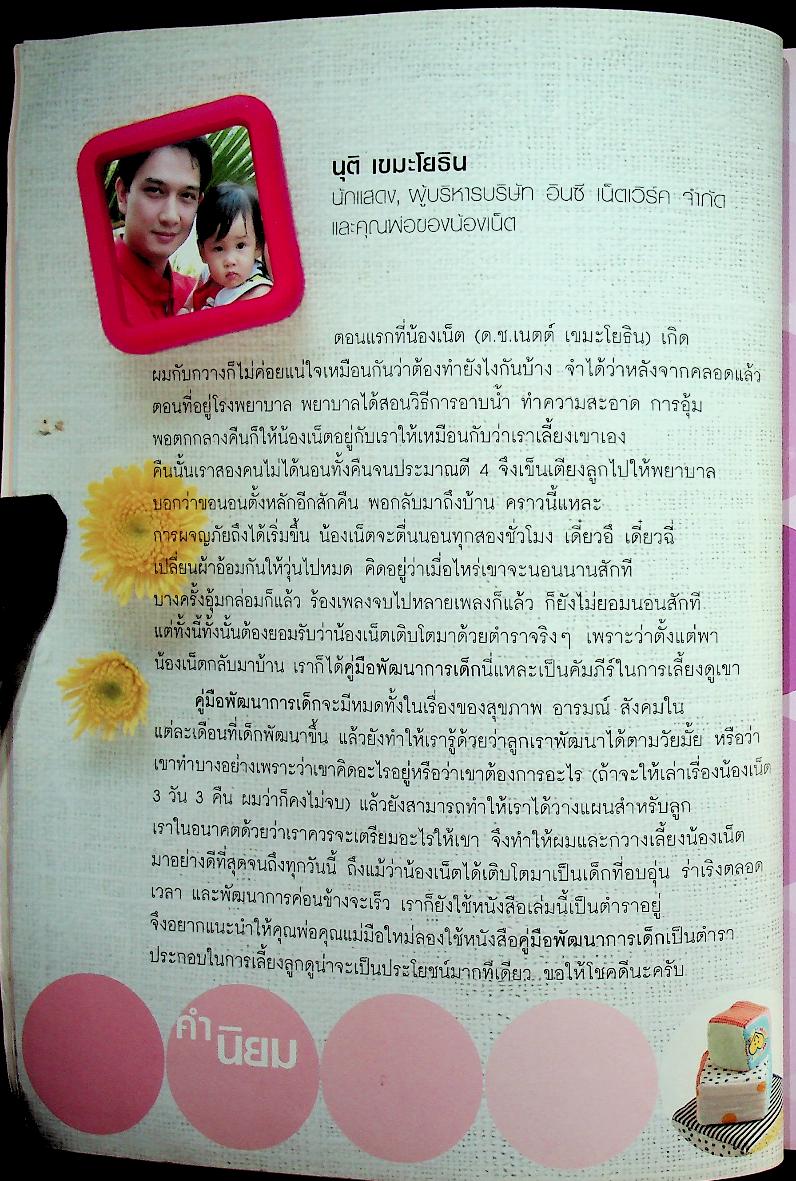 นุติ เขมะโยธิน
นักแสดง, ผู้บริหารบริษัท อินซี เน็ตเวิร์ค จำกัด
และคุณพ่อของน้องเน็ต
ตอนแรกที่น้องเน็ต (ด.ช.เนตต์ เขมะโยธิน) เกิด
ผมกับกวางก็ไม่ค่อยแน่ใจเหมือนกันว่าต้องทำยังไงกันบ้าง จำได้ว่าหลังจากคลอดแล้ว
ตอนที่อยู่โรงพยาบาล พยาบาลได้สอนวิธีการอาบน้ำ ทำความสะอาด การอุ้ม
พอตกกลางคืนก็ให้น้องเน็ตอยู่กับเราให้เหมือนกับว่าเราเลี้ยงเขาเอง
คืนนั้นเราสองคนไม่ได้นอนทั้งคืนจนประมาณตี 4 จึงเข็นเตียงลูกไปให้พยาบาล
บอกว่าขอนอนตั้งหลักอีกสักคืน พอกลับมาถึงบ้าน คราวนี้แหละ
การผจญภัยถึงได้เริ่มขึ้น น้องเน็ตจะตื่นนอนทุกสองชั่วโมง เดี๋ยวอึ เดี๋ยวฉี่
เปลี่ยนผ้าอ้อมกันให้วุ่นไปหมด คิดอยู่ว่าเมื่อไหร่เขาจะนอนนานสักที
บางครั้งอุ้มกล่อมก็แล้ว ร้องเพลงจบไปหลายเพลงก็แล้ว ก็ยังไม่ยอมนอนสักที
แต่ทั้งนี้ทั้งนั้นต้องยอมรับว่าน้องเน็ตเติบโตมาด้วยตำราจริงๆ เพราะว่าตั้งแต่พา
น้องเน็ตกลับมาบ้าน เราก็ได้คู่มือพัฒนาการเด็กนี่แหละเป็นคัมภีร์ในการเลี้ยงดูเขา
คู่มือพัฒนาการเด็กจะมีหมดทั้งในเรื่องของสุขภาพ อารมณ์ สังคมใน
แต่ละเดือนที่เด็กพัฒนาขึ้น แล้วยังทำให้เรารู้ด้วยว่าลูกเราพัฒนาได้ตามวัยมั้ย หรือว่า
เขาทำบางอย่างเพราะว่าเขาคิดอะไรอยู่หรือว่าเขาต้องการอะไร (ถ้าจะให้เล่าเรื่องน้องเน็ต
3 วัน 3 คืน ผมว่าก็คงไม่จบ) แล้วยังสามารถทำให้เราได้วางแผนสำหรับลูก
เราในอนาคตด้วยว่าเราควรจะเตรียมอะไรให้เขา จึงทำให้ผมและกวางเลี้ยงน้องเน็ต
มาอย่างดีที่สุดจนถึงทุกวันนี้ ถึงแม้ว่าน้องเน็ตได้เติบโตมาเป็นเด็กที่อบอุ่น ร่าเริงตลอด
เวลา และพัฒนาการค่อนข้างจะเร็ว เราก็ยังใช้หนังสือเล่มนี้เป็นตำราอยู่
จึงอยากแนะนำให้คุณพ่อคุณแม่มือใหม่ลองใช้หนังสือคู่มือพัฒนาการเด็กเป็นตำรา
ประกอบในการเลี้ยงลูกดูน่าจะเป็นประโยชน์มากทีเดียว ขอให้โชคดีนะครับ
คำ
นิยม